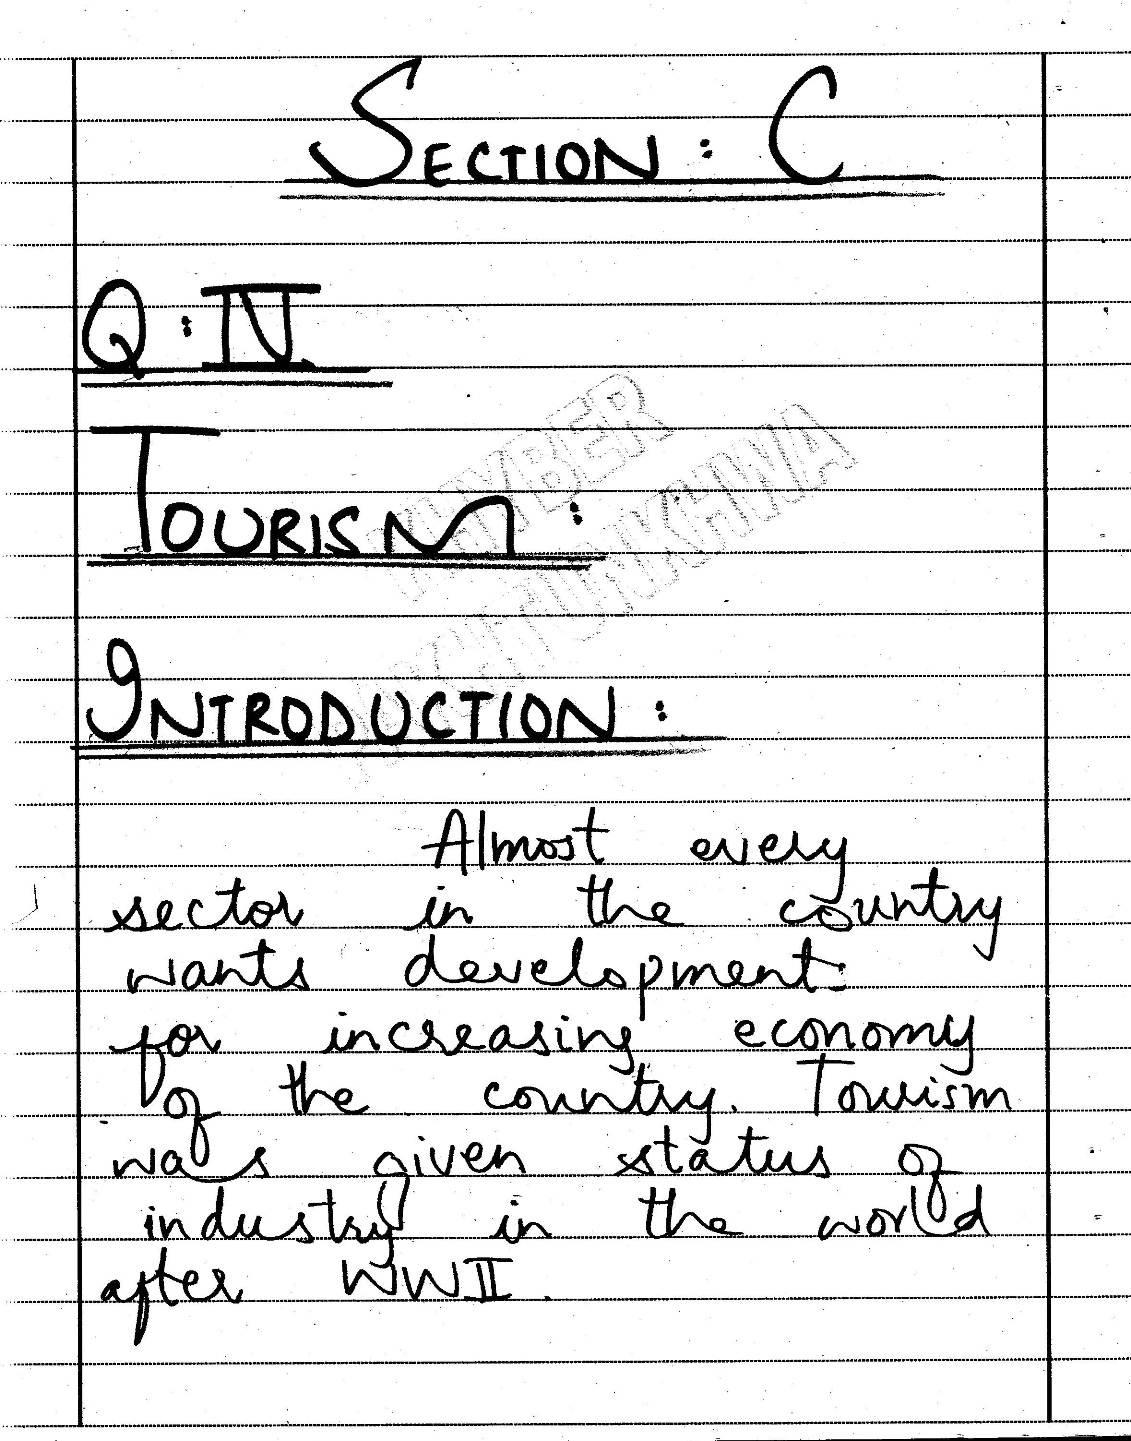 SECTION: C
Q: IV
TOURISM:
KHYBER
PAKHTUNKHWA
INTRODUCTION:
Almost every
sector in the country
wants development
for increasing economy
of the country. Tourism
was given status of
industry in the world
after WWII.